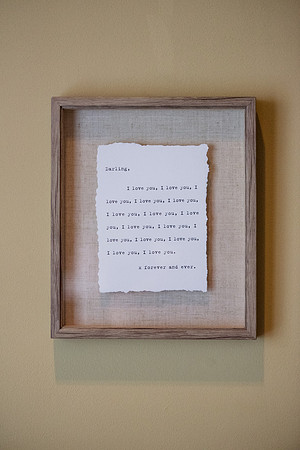 Darling,
I love you, I love you, I
love you, I love you, I love you,
I love you, I love you, I love
you, I love you, I love you, I
love you, I love you, I love you,
I love you, I love you.
x forever and ever.